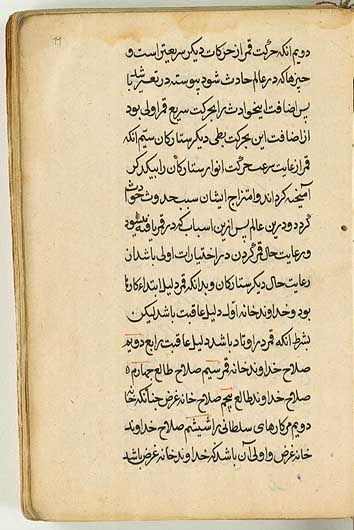 دویم آنکه حرکت قمر از حرکات دیگر سریعتر است و
چیزها که در عالم حادث شود پیوسته در تغیر باشد
پس اضافت این حوادث بر حرکت سریع قمر اولی بود
از اضافت این بحرکت بطی دیگر ستارکان سیّم آنکه
قمر از غایت سرعت حرکت انوار ستارکان را بیکدیگر
آمیخته کرداند و امتزاج ایشان سبب حدوث حوادث
کردد و درین عالم پس ازین اسباب که در قمر یافته میشود
و رعایت حال قمر کردن در اختیارات اولی باشد از
رعایت حال دیکر ستارکان و بدانکه قمر دلیل ابتداء کارها
بود و خداوند خانه او دلیل عاقبت باشد لیکن
بشرط آنکه قمر در اوتاد باشد دلیل عاقبت رابع دویم
صلاح خداوند خانه قمر سیم صلاح طالع چهارم
صلاح خداوند طالع پنجم صلاح خانه غرض چنانکه خانه
دویم مر کارهای سلطانی را ششم صلاح خداوند
خانه غرض و اولی آن باشد که خداوند خانه غرض باشد